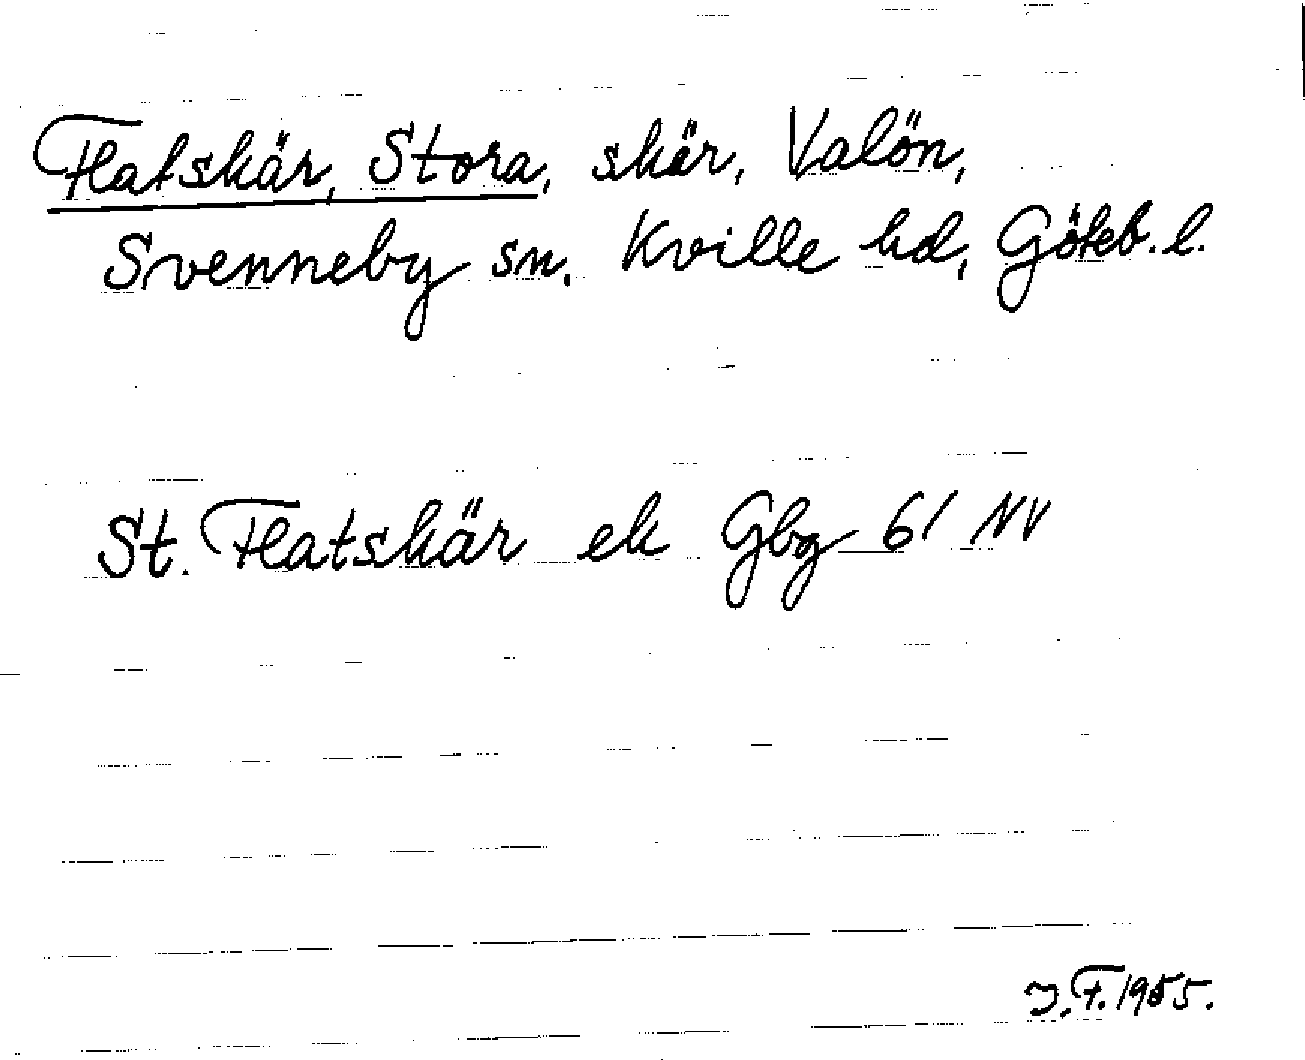 Flatskär, Stora, skär, Valön,
Svenneby sn. Kville hd, Göteb. l.
St. Flatskär ek Gbg 61 NV
I.F. 1955.